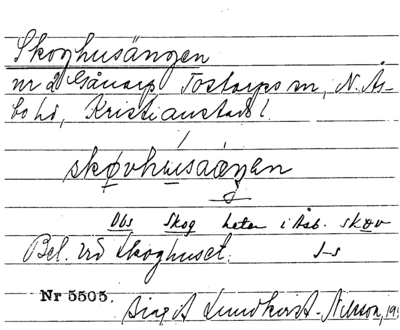 Skoghusängen
nr 2 Gånarp Tostarps sn, N. Ås-
bo hd, Kristianstads l.
skøvhusaeŋen
Obs Skog heter i Åsb. skøv
Bel. vid skoghuset. S-s
Nr 5505.
Birgit Lundkvist-Nilsson, 19